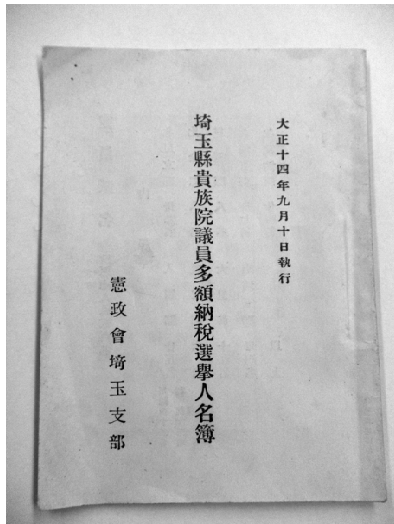 大正十四年九月十日執行
埼玉縣貴族院議員多額納稅選擧人名簿
憲政會埼玉支部